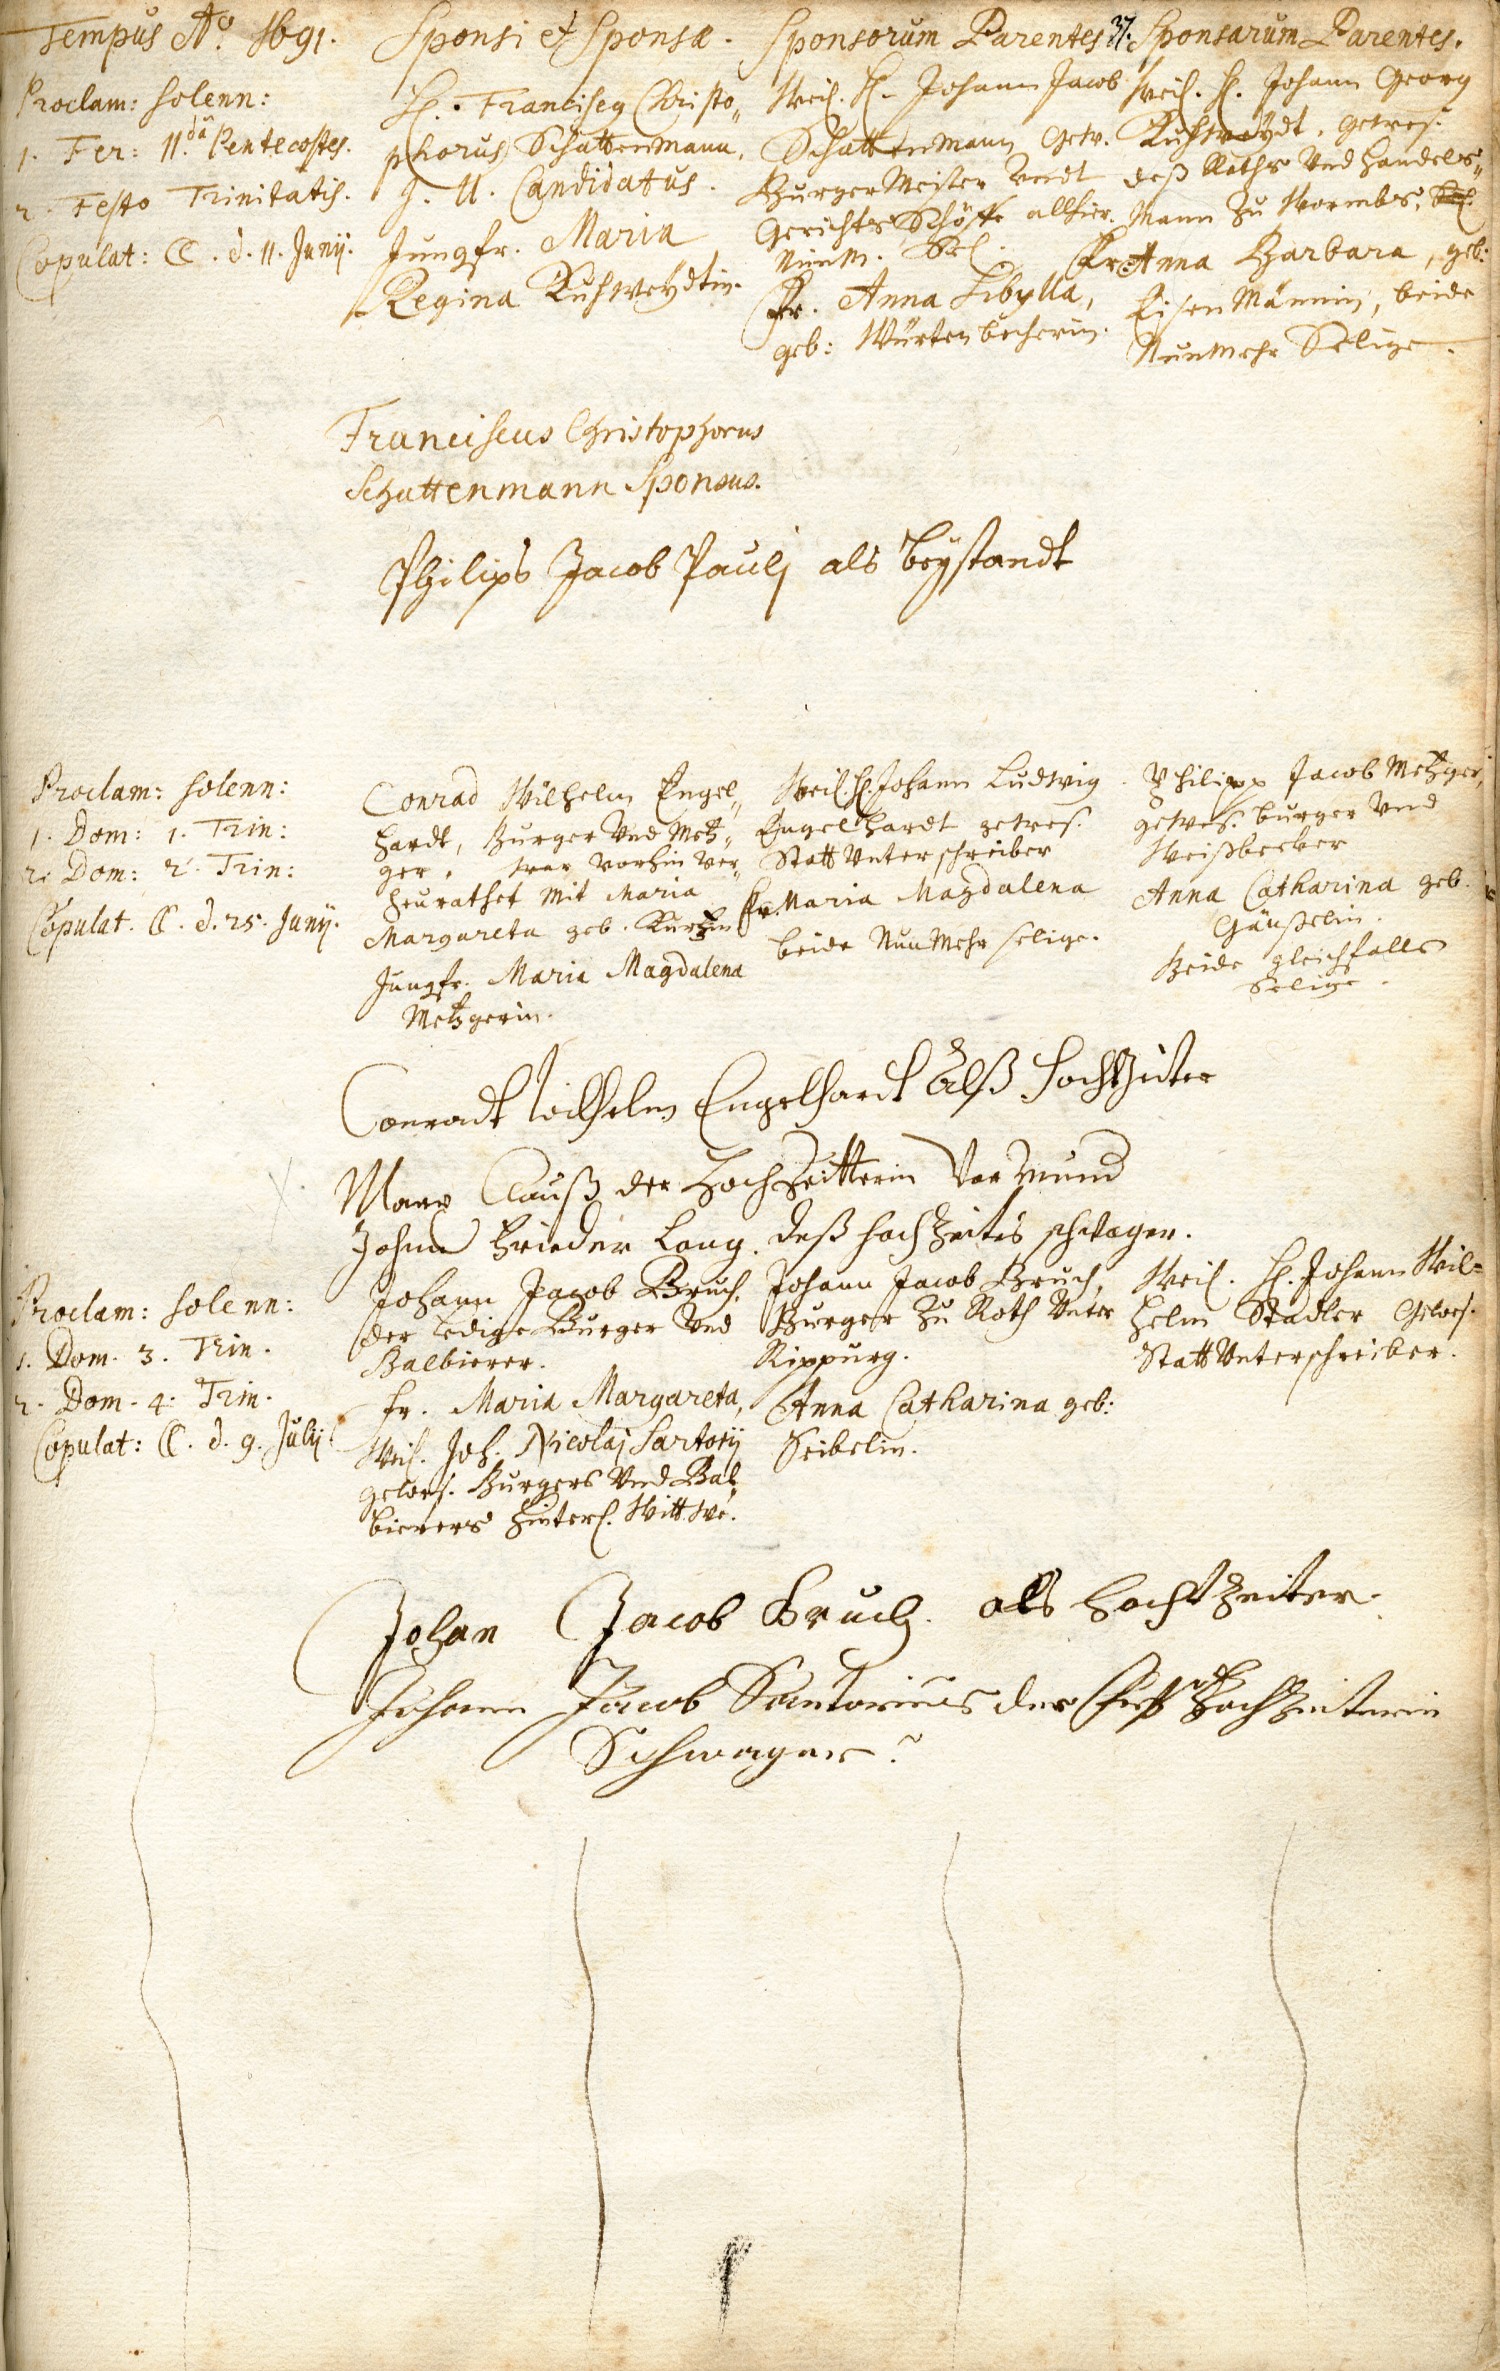 Tempus Aº. 1691.
Sponsi et Sponsæ.
Sponsorum Parentes
37.
Sponsarum Parentes.
Proclam: solenn:
1. Fer: II.da Pentecostes.
2. Festo Trinitatis.
Copulat: C. d. 11. Junij.
H. Franciscq Christo„
phorus Schattenmann,
J. U. Candidatus.
Jungfr. Maria
Regina Kuhweÿdtin.
Weil. H. Johann Jacob
Schattenmann Gew.
BurgerMeister Vndt
Gerichts Schöffe allhier.
Nunm. Sel.
Fr. Anna Sibylla,
geb: Würtenbecherin.
Weil. H. Johann Georg
Kuhweÿdt, gewes.
deß Raths Vnd Handels„
Mann Zu Wormbs,
Fr. Anna Barbara, geb:
EisenMännin, beide
NunMehr Selige.
Franciscus Christophorus
Schattenmann Sponsus.
Philips Jacob Paulj als beÿstandt
Proclam: solenn:
1. Dom: 1. Trin:
2. Dom: 2. Trin:
Copulat. C. d. 25. Junij.
Conrad Wilhelm Engel„
hardt, Burger Vnd Metz„
ger, war vorhin Ver„
heurathet Mit Maria
Margareta geb.
Jungfr. Maria Magdalena
Metzgerin.
Weil. H. Johann Ludwig
Engelhardt gewes.
Statt Unterschreiber
Fr. Maria Magdalena
beide NunMehr selige.
Philipp Jacob Metzger,
gewes. burger Vnd
Weißbecker
Anna Catharina geb.
Gänßelin.
Beide gleichfalls
Selige.
Conradt Wilhelm Engelhardt Alß Hochzeiter
Marx Clauß der Hochzeitterin Vormund
Johann Frieder Lang. deß hochzeiters schwager.
Proclam: solenn:
1. Dom. 3. Trin.
2. Dom. 4. Trin.
Copulat: C. d. 9. Julij.
Johann Jacob Bruch,
der ledige Burger Vnd
Balbierer.
Fr. Maria Margareta,
Weil. Joh. Nicolaj Sartorij
gewes. Burgers Vnd Bal„
bierers hinterl. Wittwe.
Johann Jacob Bruch,
Burger Zu Roth Vnter
Rippurg.
Anna Catharina geb:
Seibelin.
Weil. H. Johann Wil=
helm Stadler Gewes.
Statt Unterschreiber.
Johan Jacob Bruch. als hochtzeiter.
Johann Jacob Santorius der Hochzeiterin
Schwager